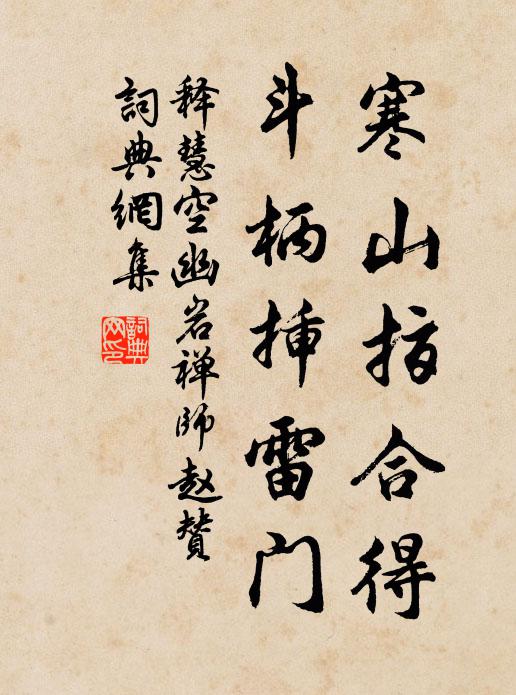 寒山指合得
斗柄挿雷门
释慧空幽岩禅师赵赞
詞典網集
詞典网印